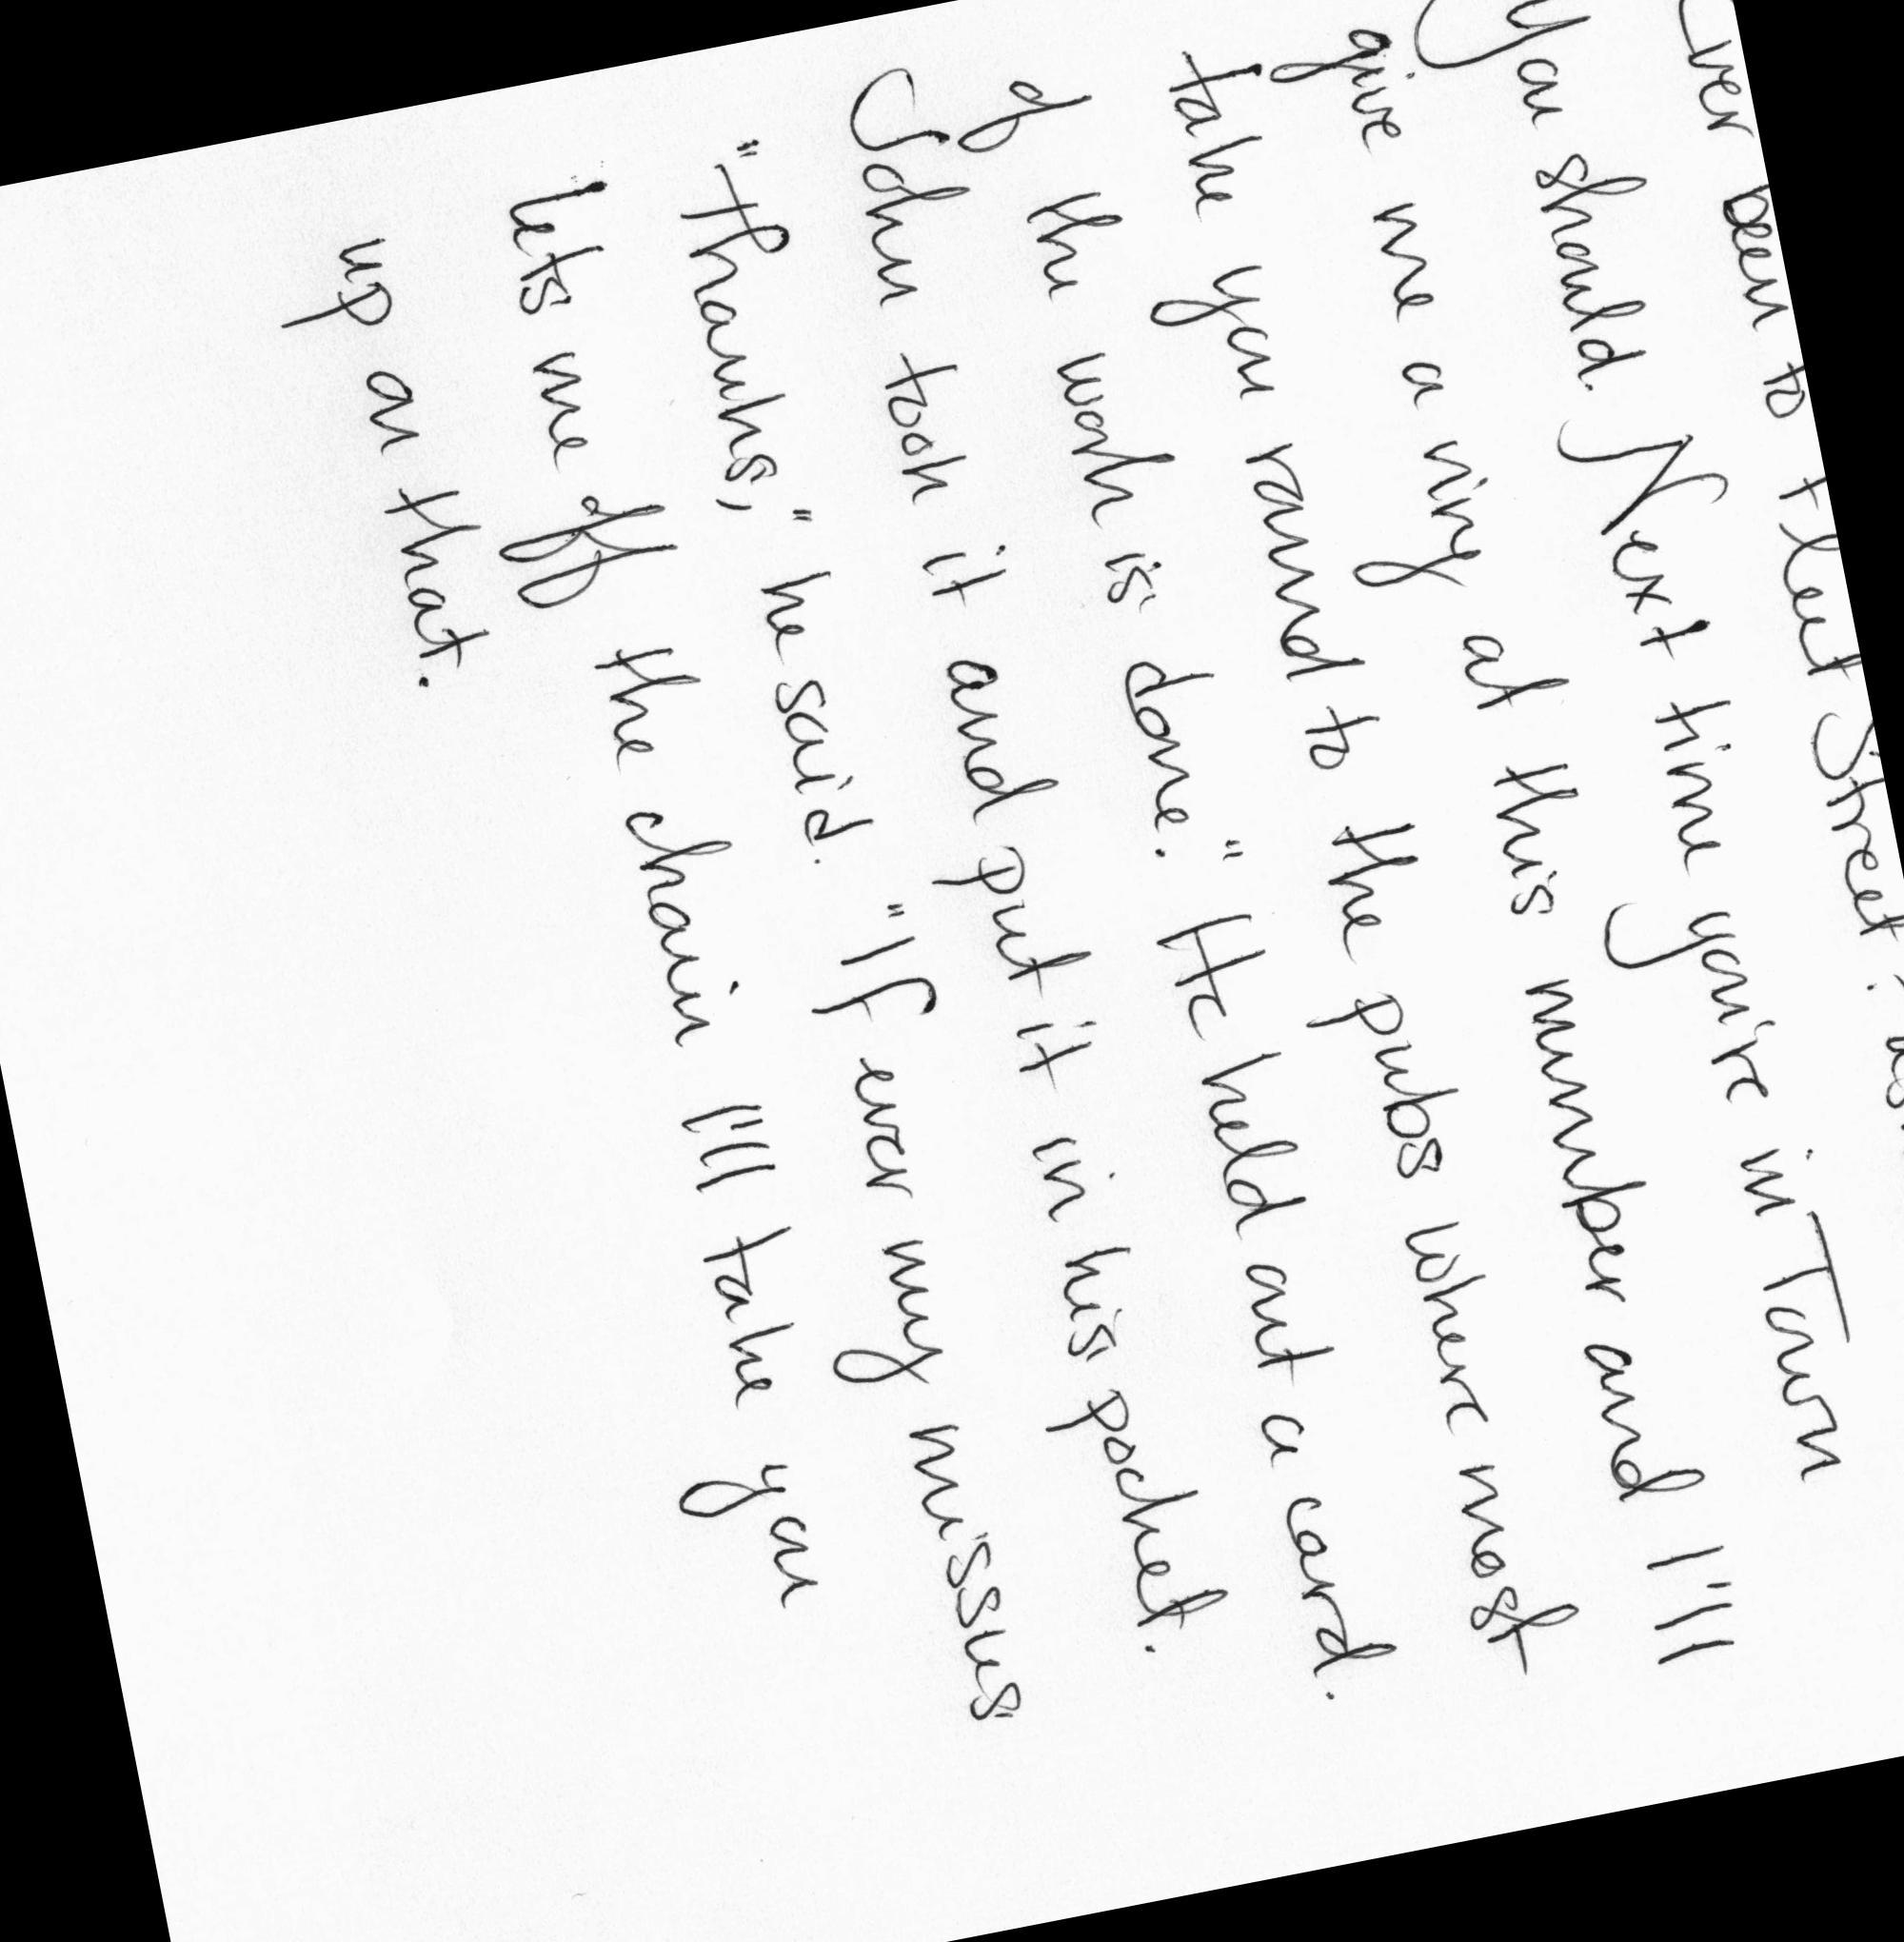 ver been to Fleet Street?
You should. Next time you're in Town
give me a ring at this number and I'll
take you round to the pubs where most
of the work is done." He held out a card.
John took it and put it in his pocket.
"Thanks," he said. "If ever my missus
lets me off the chain I'll take you
up on that.